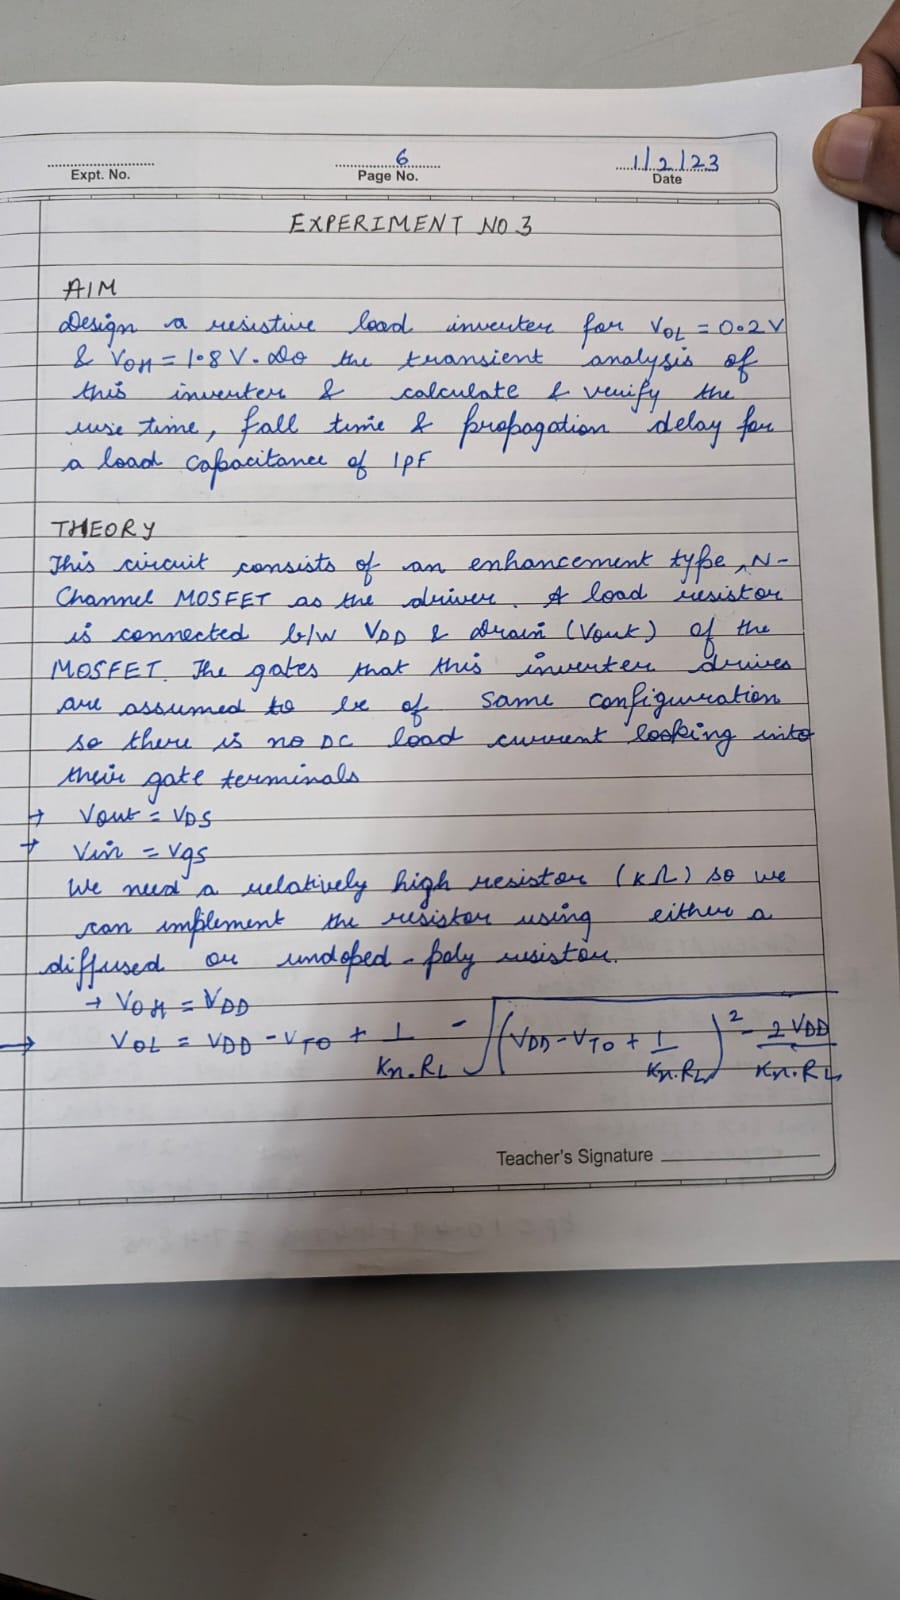 6
1/2/23
Expt. No.
Page No.
Date
EXPERIMENT NO 3
AIM
Design a resistive load inverter for VOL = 0.2V
& VOH = 1.8V. Do the transient analysis of
this inverter & calculate & verify the
rise time, fall time & propagation delay for
a load capacitance of 1PF
THEORY
This circuit consists of an enhancement type ^ N-
Channel MOSFET as the driver. A load resistor
is connected b/w VDD & drain (Vout) of the
MOSFET. The gates that this inverter drives
are assumed to be of same configuration
so there is no DC load current looking into
their gate terminals
→ Vout = VDS
→ Vin = Vgs
We need a relatively high resistor (KΩ) so we
can implement the resistor using either a
diffused or undoped-poly resistor.
→ VOH = VDD
→ VOL = VDD - VTO + 1/Kn.RL - √((VDD - VTO + 1/Kn.RL)² - 2VDD/Kn.RL)
Teacher's Signature